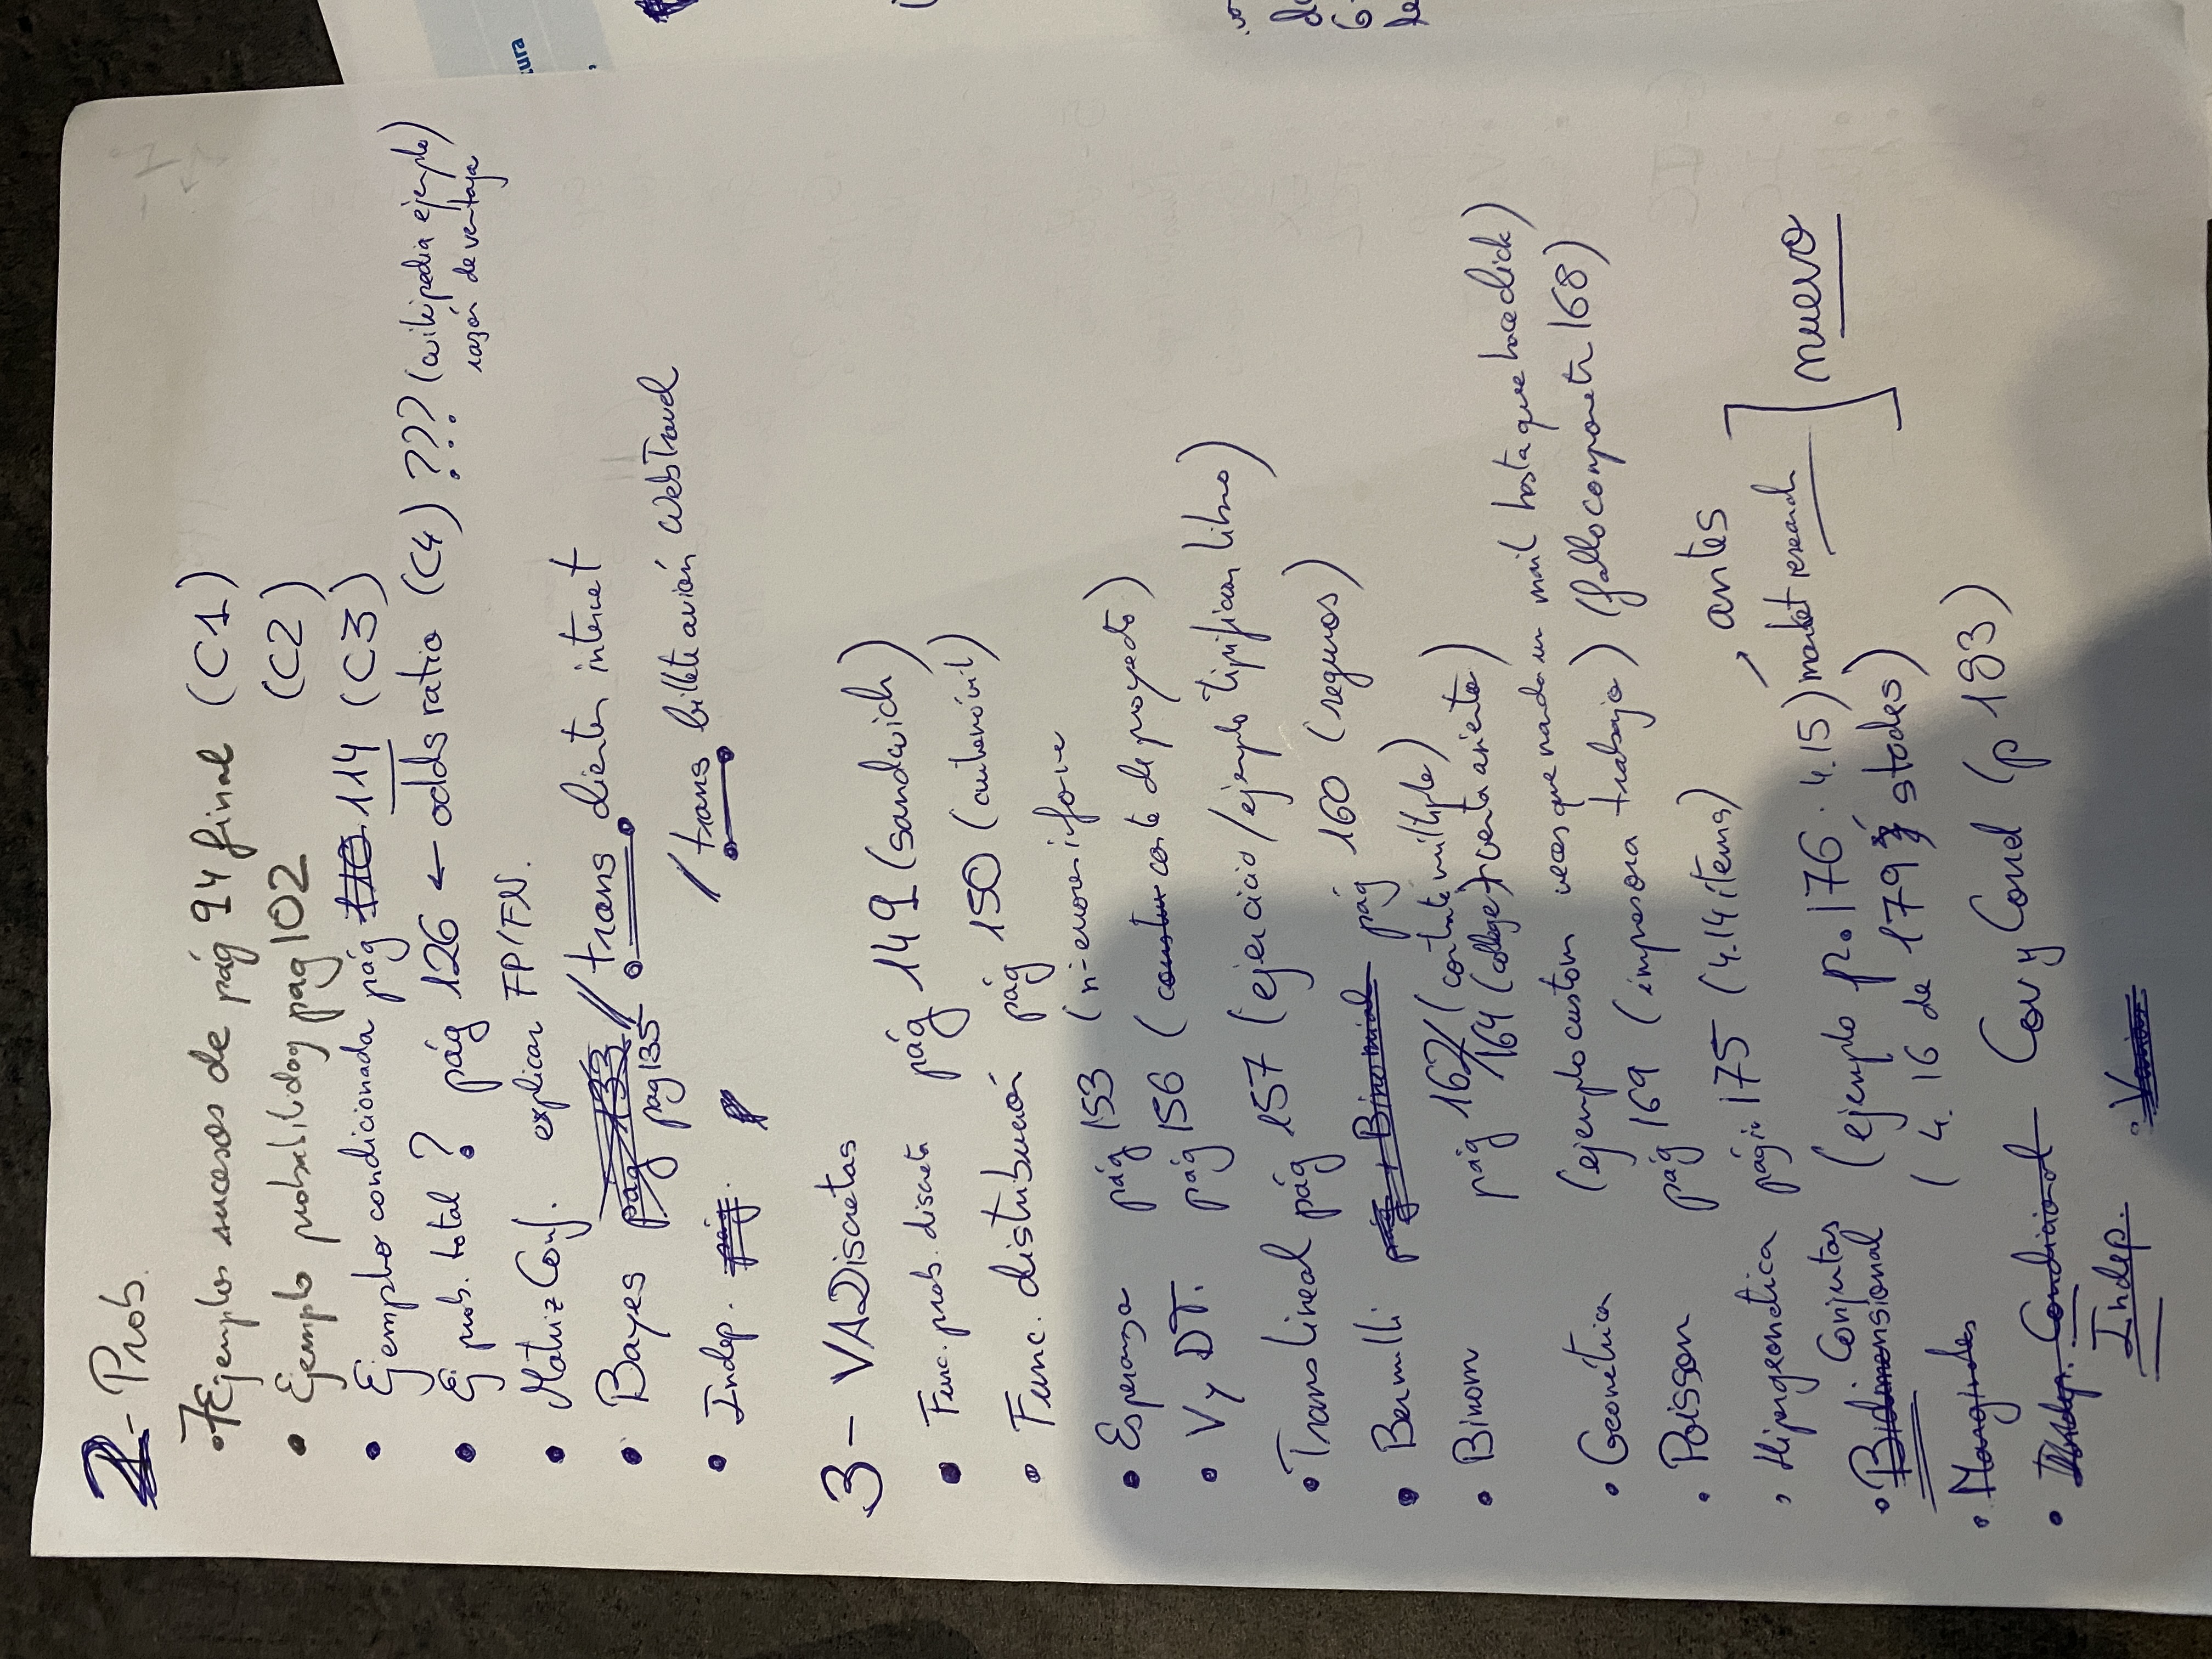 2- Prob.
• 7 Ejemplos sucesos de pág 94 final (C1)
• Ejemplo probabilidag pag 102 (C2)
• Ejemplo condicionada pág 110 114 (C3)
• Ej prob. total ? pág 126 ← odds ratio (C4) ??? (wikipedia ejemplo)
razón de ventaja
• Matriz Conf. explicar FP/FN.
• Bayes pág 133 // trans clientes internet
pag 135
• Indep. pág. / trans billete avión WebTravel
3- VADiscretas
• Func. prob. discreta pág 149 (sandwich)
• Func. distribución pág 150 (automóvil)
• Esperanza pág 153 (nº errores informe
• V y DT. pág 156 (constru coste de proyecto)
• Trans lineal pág 157 (ejercicio/ejemplo tipificar libro)
• Bernulli pág + Binomial pág 160 (seguros)
• Binom pág 162/ (contrato múltiple)
164 (college) + venta asiento)
• Geométrica (ejemplo custom veces que manda un mail hasta que hace click)
• Poisson pág 169 (impresora trabajo) (fallo componente 168)
• Hipergeométrica pág 175 (4.14 items)
→ antes
Conjuntas
• Bidimensional (ejemplo p. 176 4.15) market research
nuevo
• Marginales (4.16 de 179 stocks)
• Indep. Condicional Cov y Cond (p 183)
Indep. • Varias